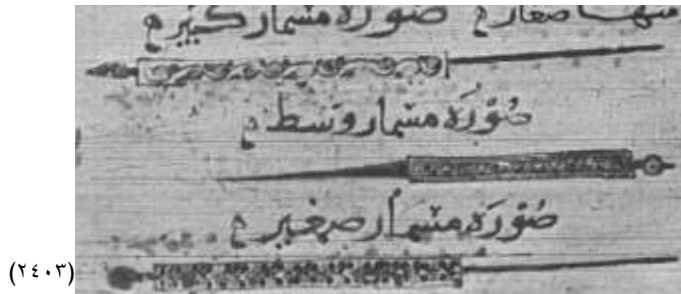 منها صغار صورة مسمار كبير
صورة مسمار وسط
صورة مسمار صغير
(٢٤٠٣)